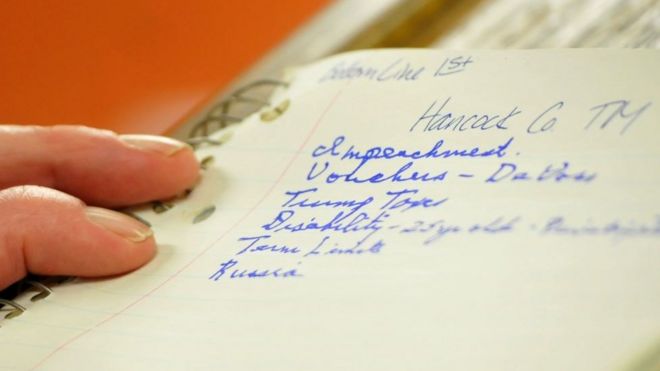 Bottom Line 1st
Hancock Co. TM
Impeachment.
Vouchers - DeVoss
Trump Taxes
Disability - 25 yr old -
Term Limits
Russia